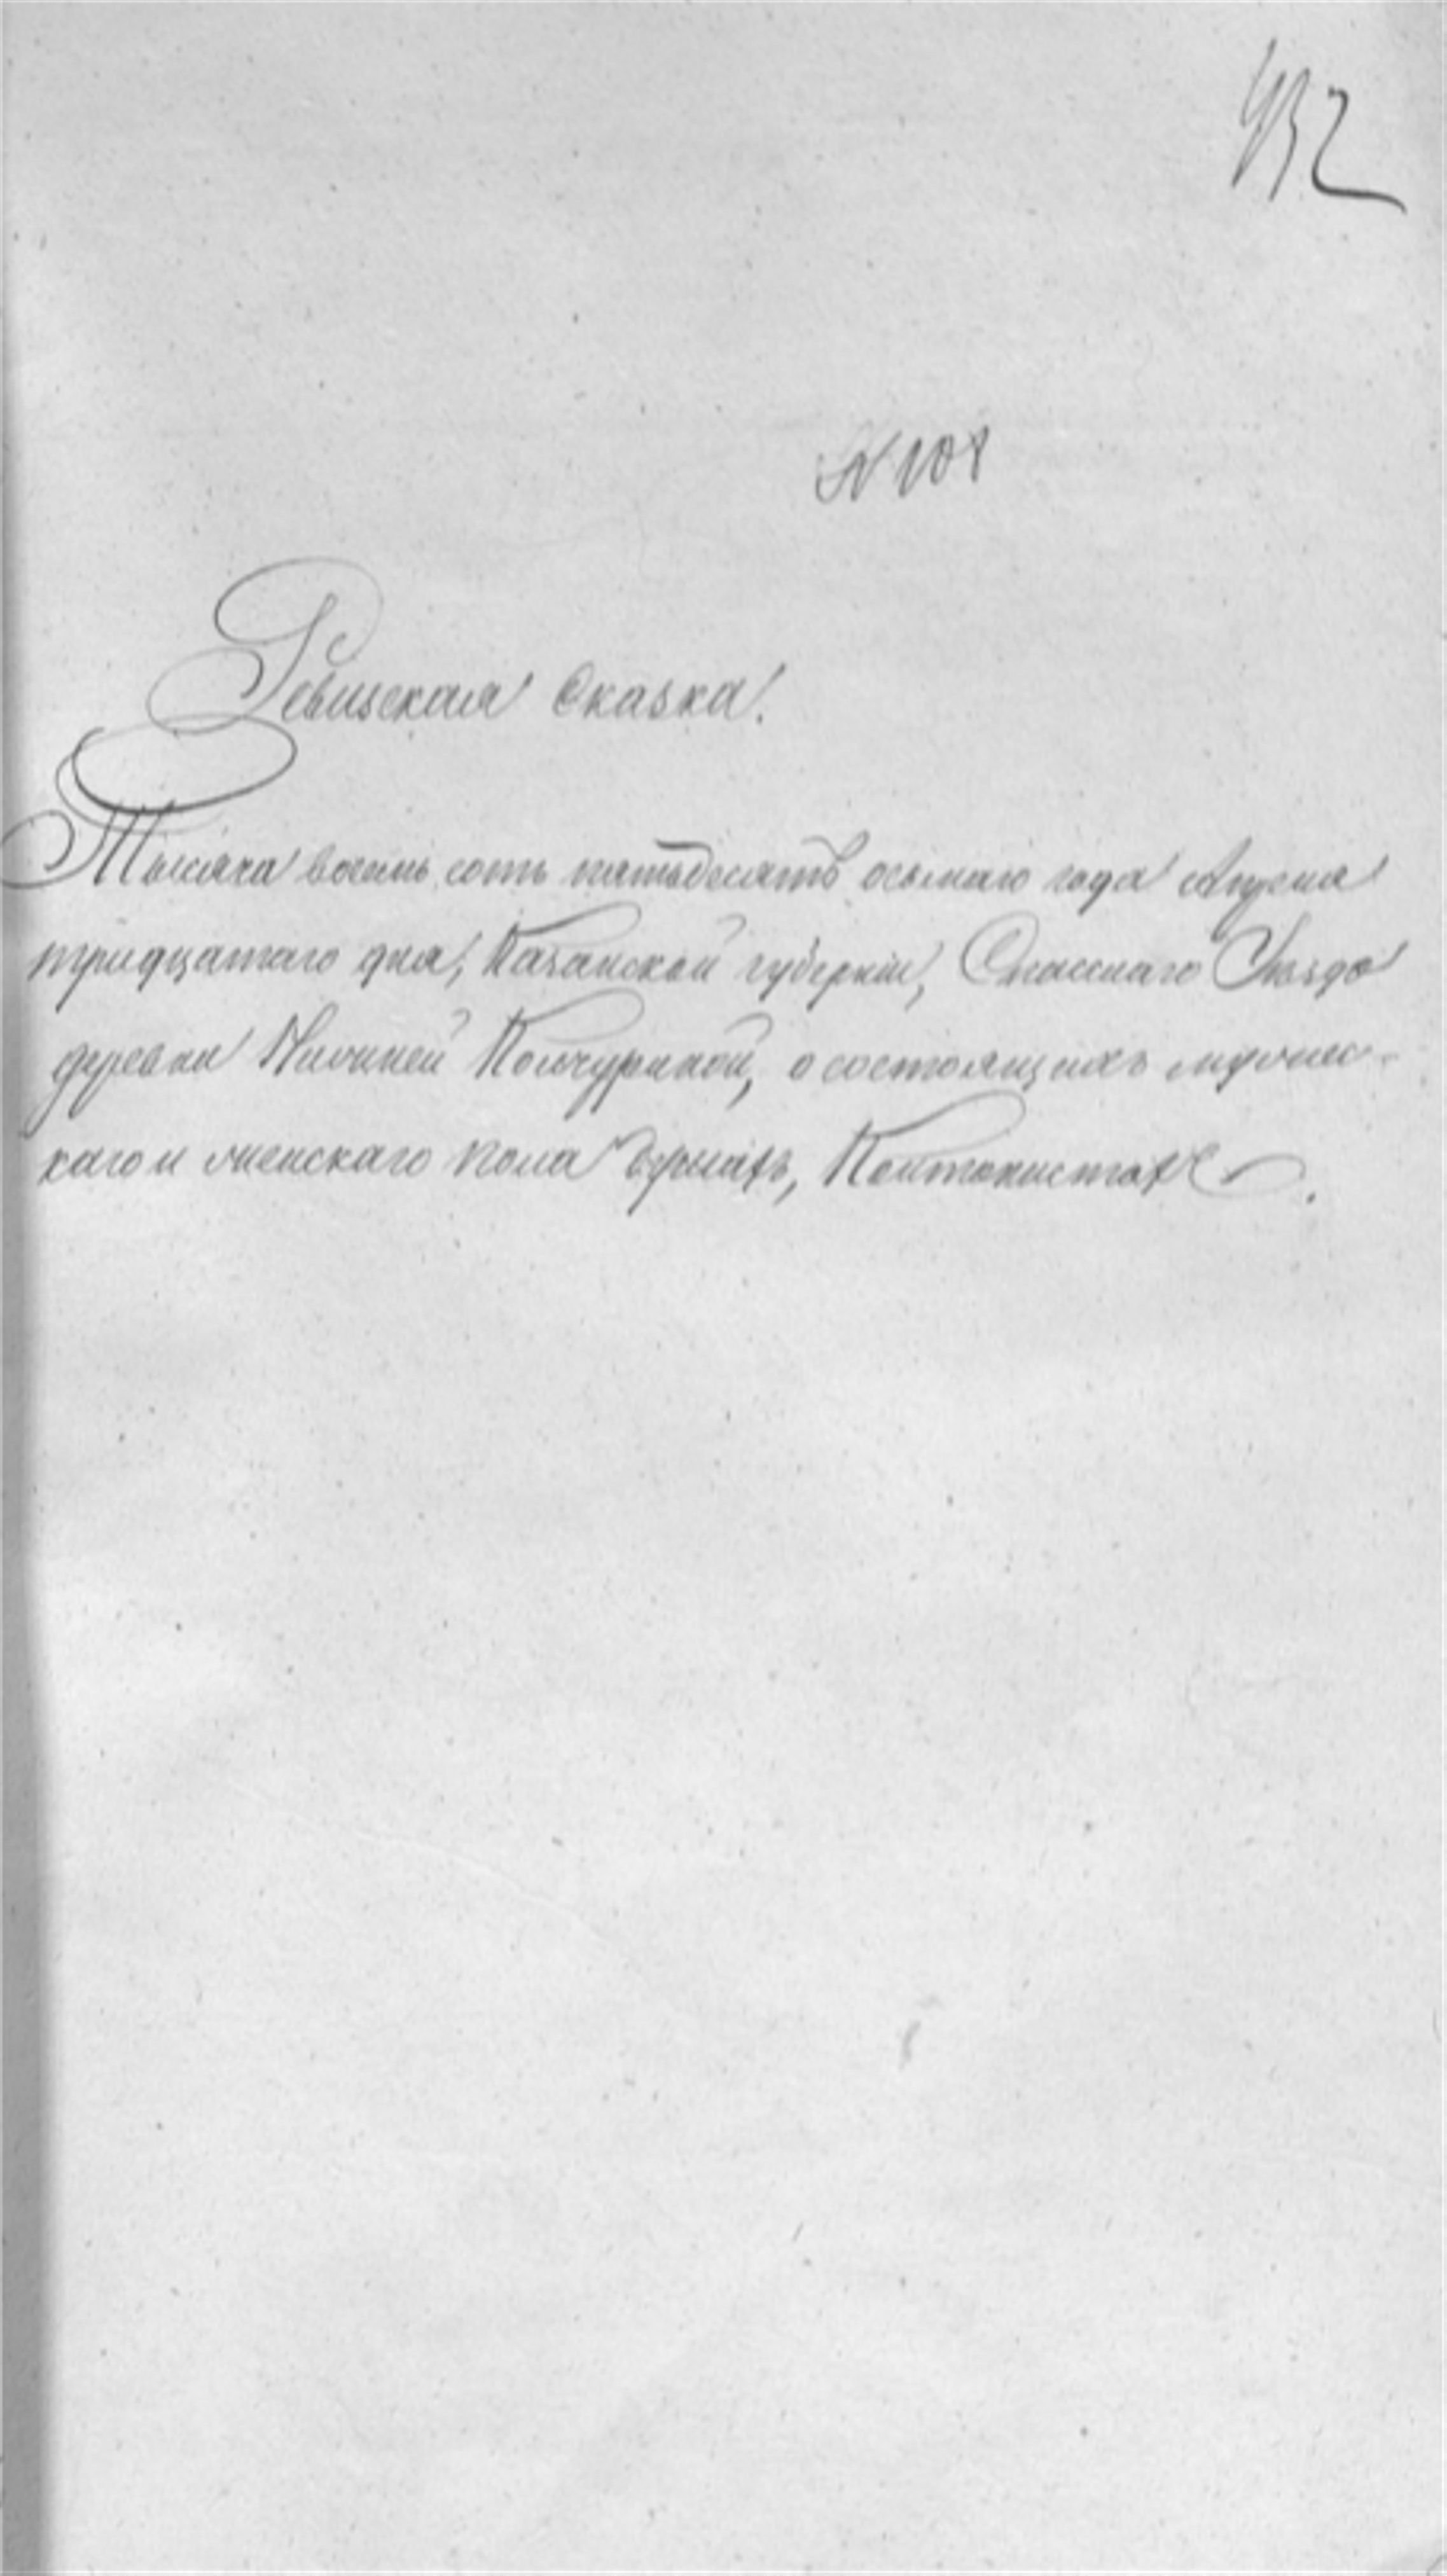 432
N 108
Ревизская Сказка.
Тысяча восемь сотъ пятьдесятъ осьмаго года Апреля
тридцатаго дня, Казанской губерніи, Спасскаго Уѣзда
деревни Нижней Кольчуриной, о состоящихъ мужес-
каго и женскаго пола душахъ, Кантонистах